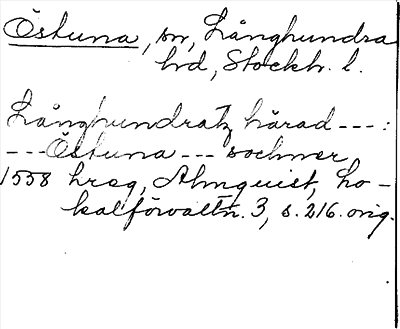 Östuna, sn, Långhundra
hd, Stockh. l.
Långhundratz härad ---:
--- Östuna --- sochner
1558 hreg, Almquist, Lo-
kalförvaltn. 3, s. 216. orig.